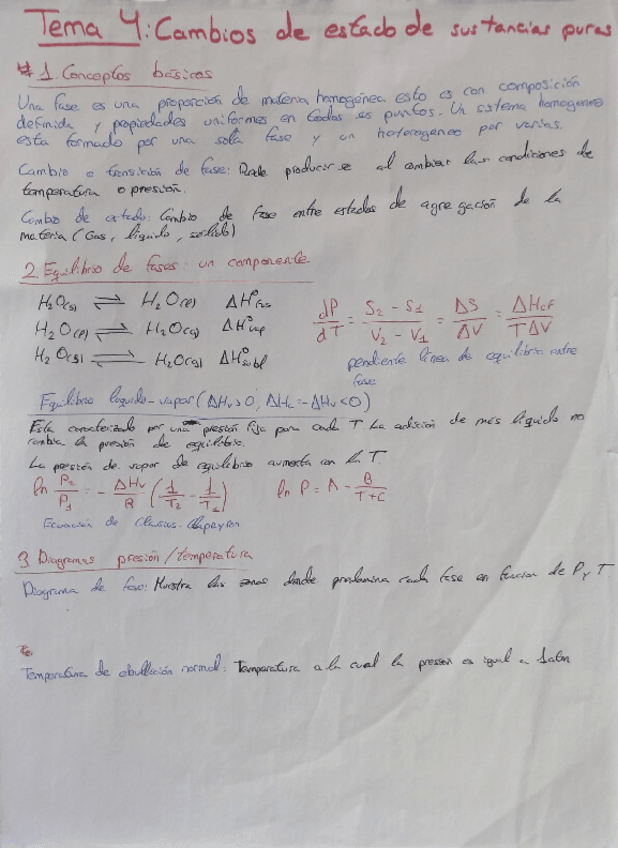 Tema 4: Cambios de estado de sustancias puras
# 1. Conceptos básicos
Una fase es una proporción de materia homogénea esto es con composición
definida y propiedades uniformes en todos sus puntos. Un sistema homogeneo
esta formado por una sola fase y un heterogeneo por varias.
Cambio o transición de fase: Puede producirse al cambiar las condiciones de
temperatura o presión.
Cambio de estado: Cambio de fase entre estados de agregación de la
materia (Gas, líquido, sólido)
2. Equilibrio de fases: un componente
H₂O(s) ⇌ H₂O(l) ΔH°fus
H₂O(l) ⇌ H₂O(g) ΔH°vap
H₂O(s) ⇌ H₂O(g) ΔH°subl
dP/dT = (S₂ - S₁)/(V₂ - V₁) = ΔS/ΔV = ΔHcf/TΔV
pendiente linea de equilibrio entre
fase
Equilibrio líquido-vapor (ΔHv>0; ΔHc=-ΔHv<0)
Esta caracterizado por una presión fija para cada T. La adición de más líquido no
cambia la presión de equilibrio.
La presión de vapor de equilibrio aumenta con la T.
ln P₂/P₁ = - ΔHv/R (1/T₂ - 1/T₁) ln P = A - B/(T+C)
Ecuación de Clausius-Clapeyron
3. Diagramas presión/temperatura
Diagrama de fase: Muestra las zonas donde predomina cada fase en funcion de P y T.
Te
Temperatura de ebullición normal: Temperatura a la cual la presion es igual a 1atm